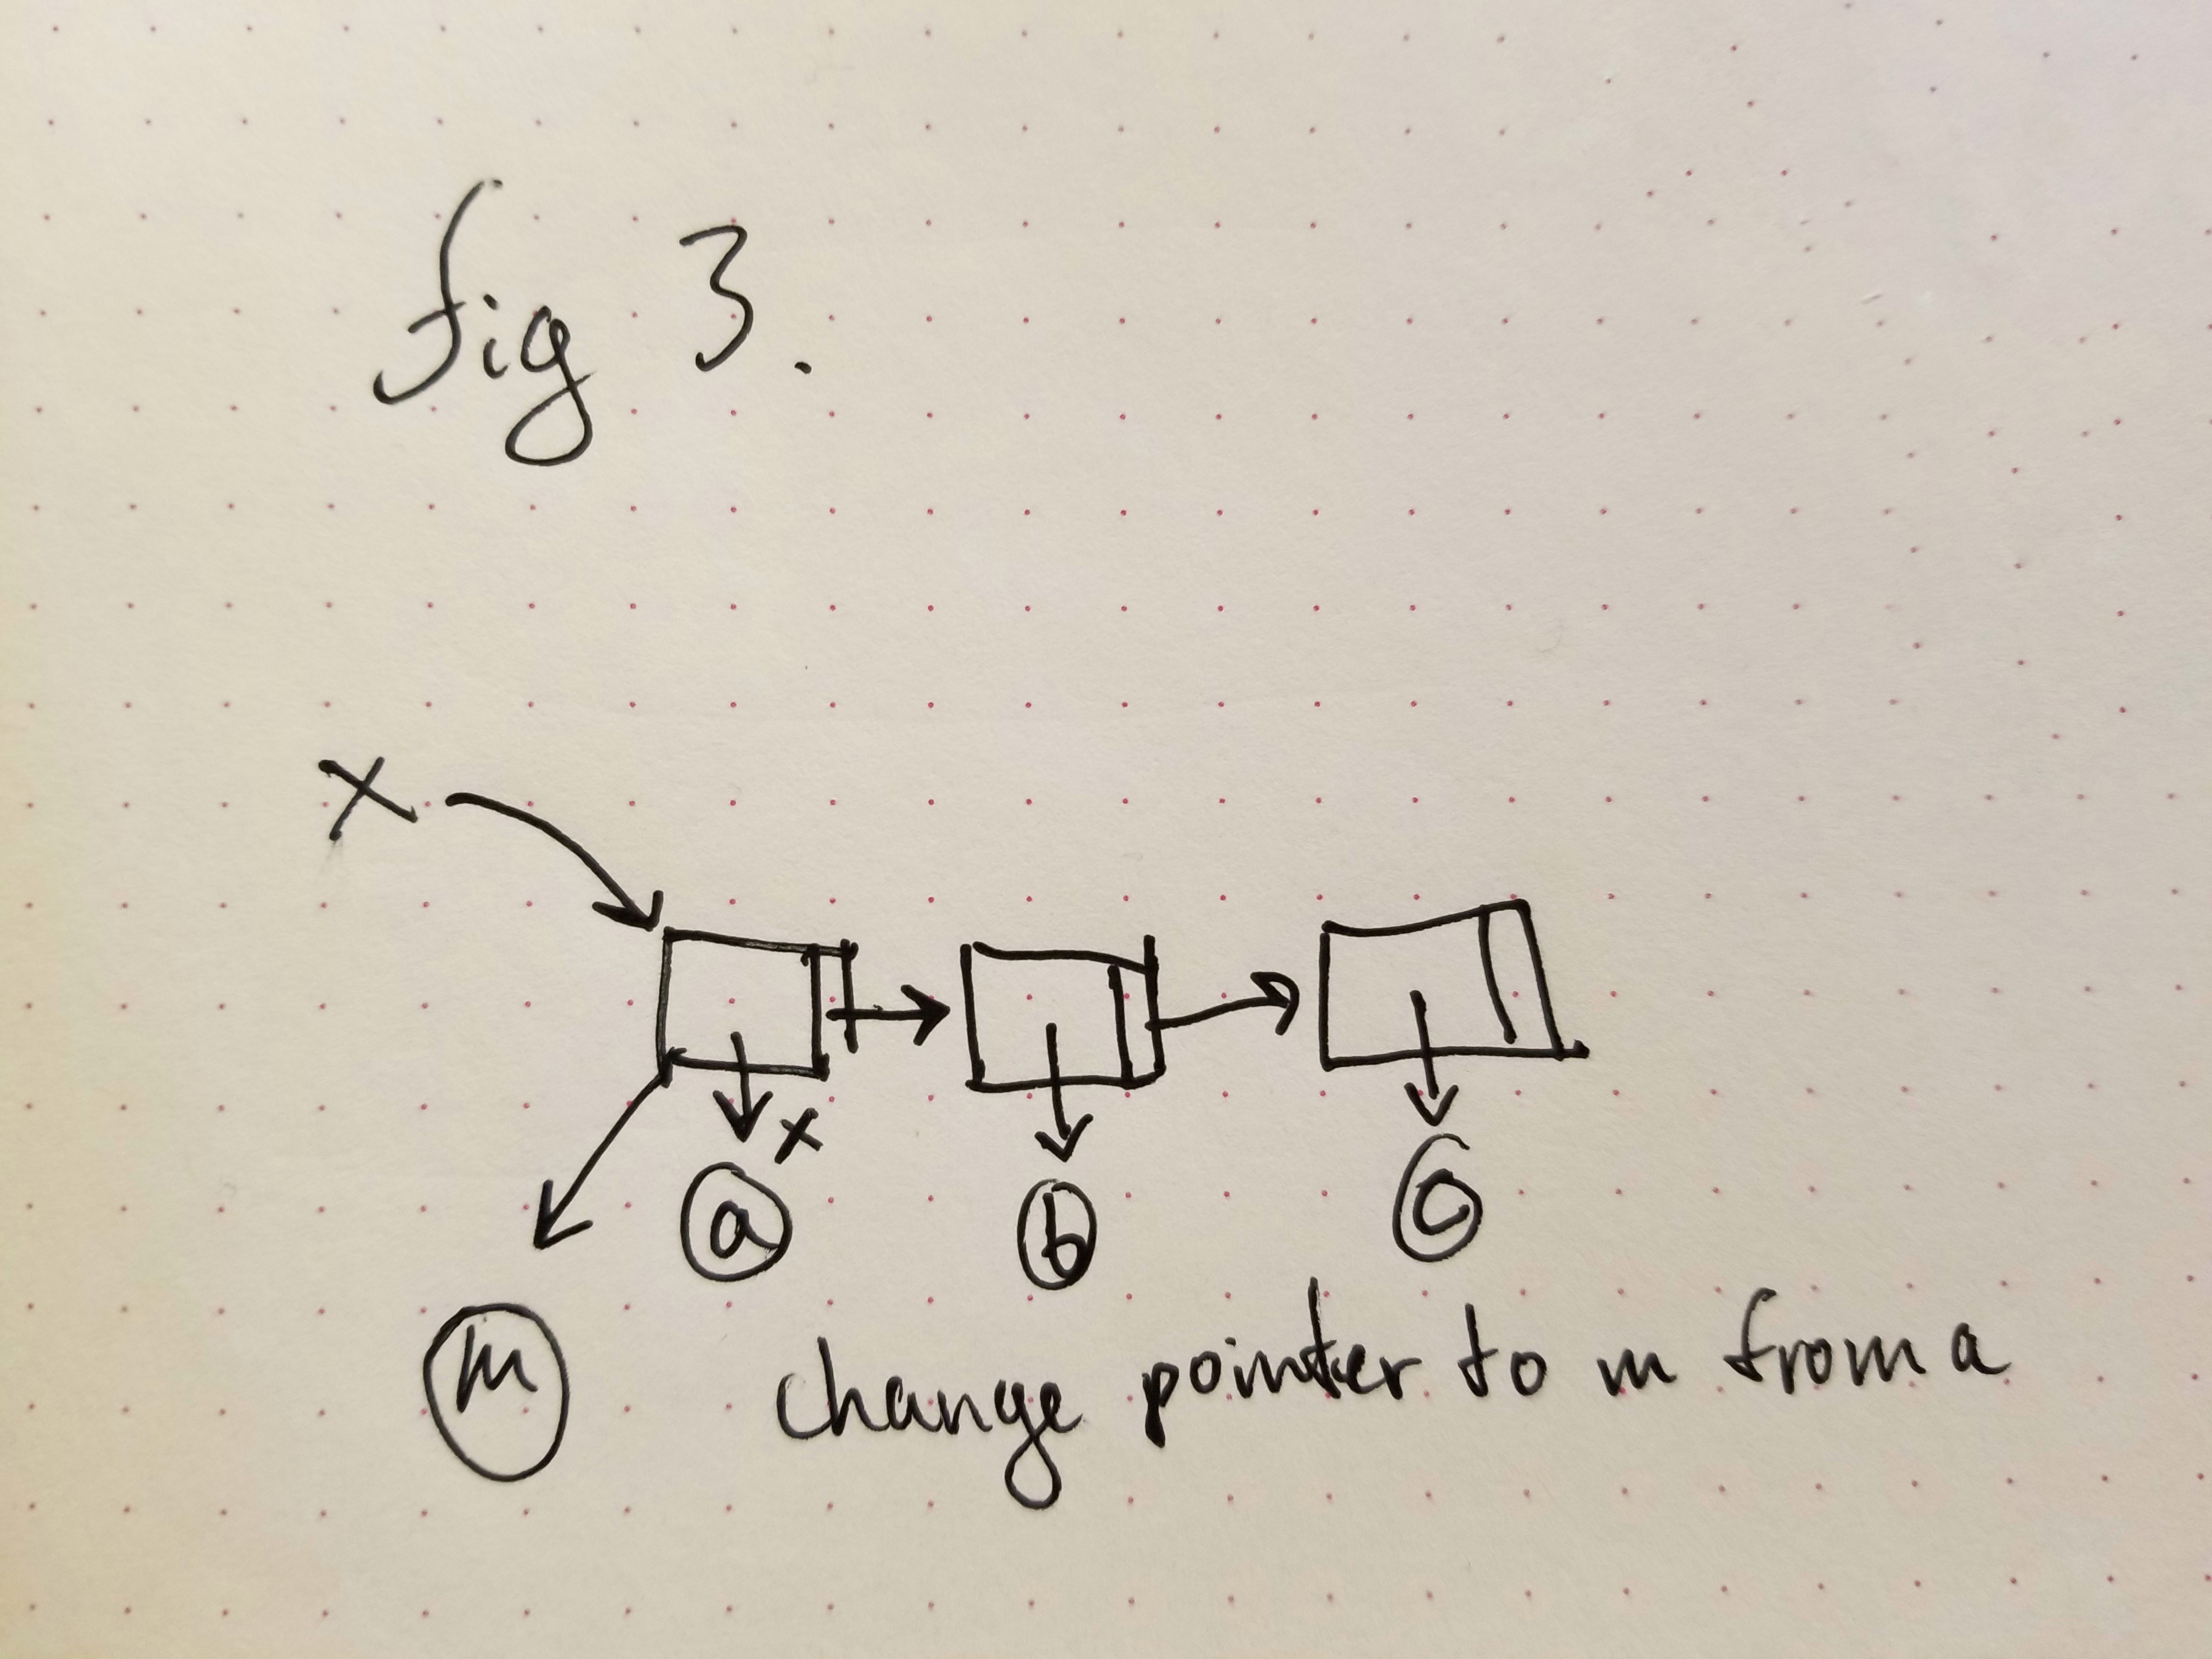 fig 3.
x
x
a b c
m
change pointer to m from a